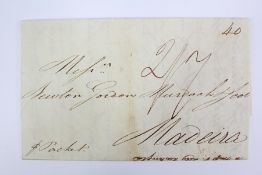 40
2/7
Mess.rs
Newton Gordon Murdoch & Scott
Madeira
p Packet